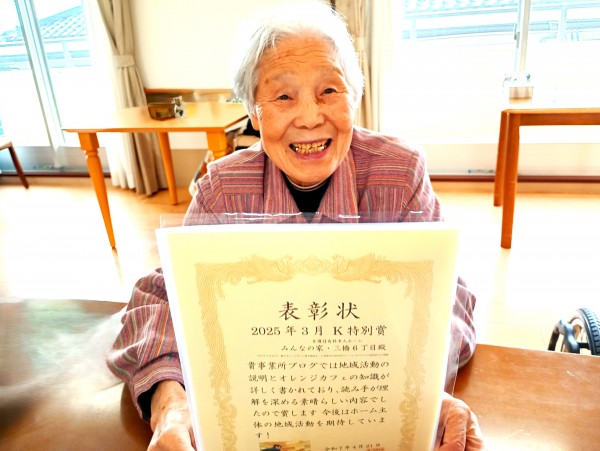 表彰状
2025年3月 K特別賞
みんなの家・三橋6丁目殿
貴事業所ブログでは地域活動の
説明とオレンジカフェの知識が
詳しく書かれており、読み手が理
解を深める素晴らしい内容でし
たので賞します 今後はホーム主
体の地域活動を期待していま
す!
令和7年4月21日